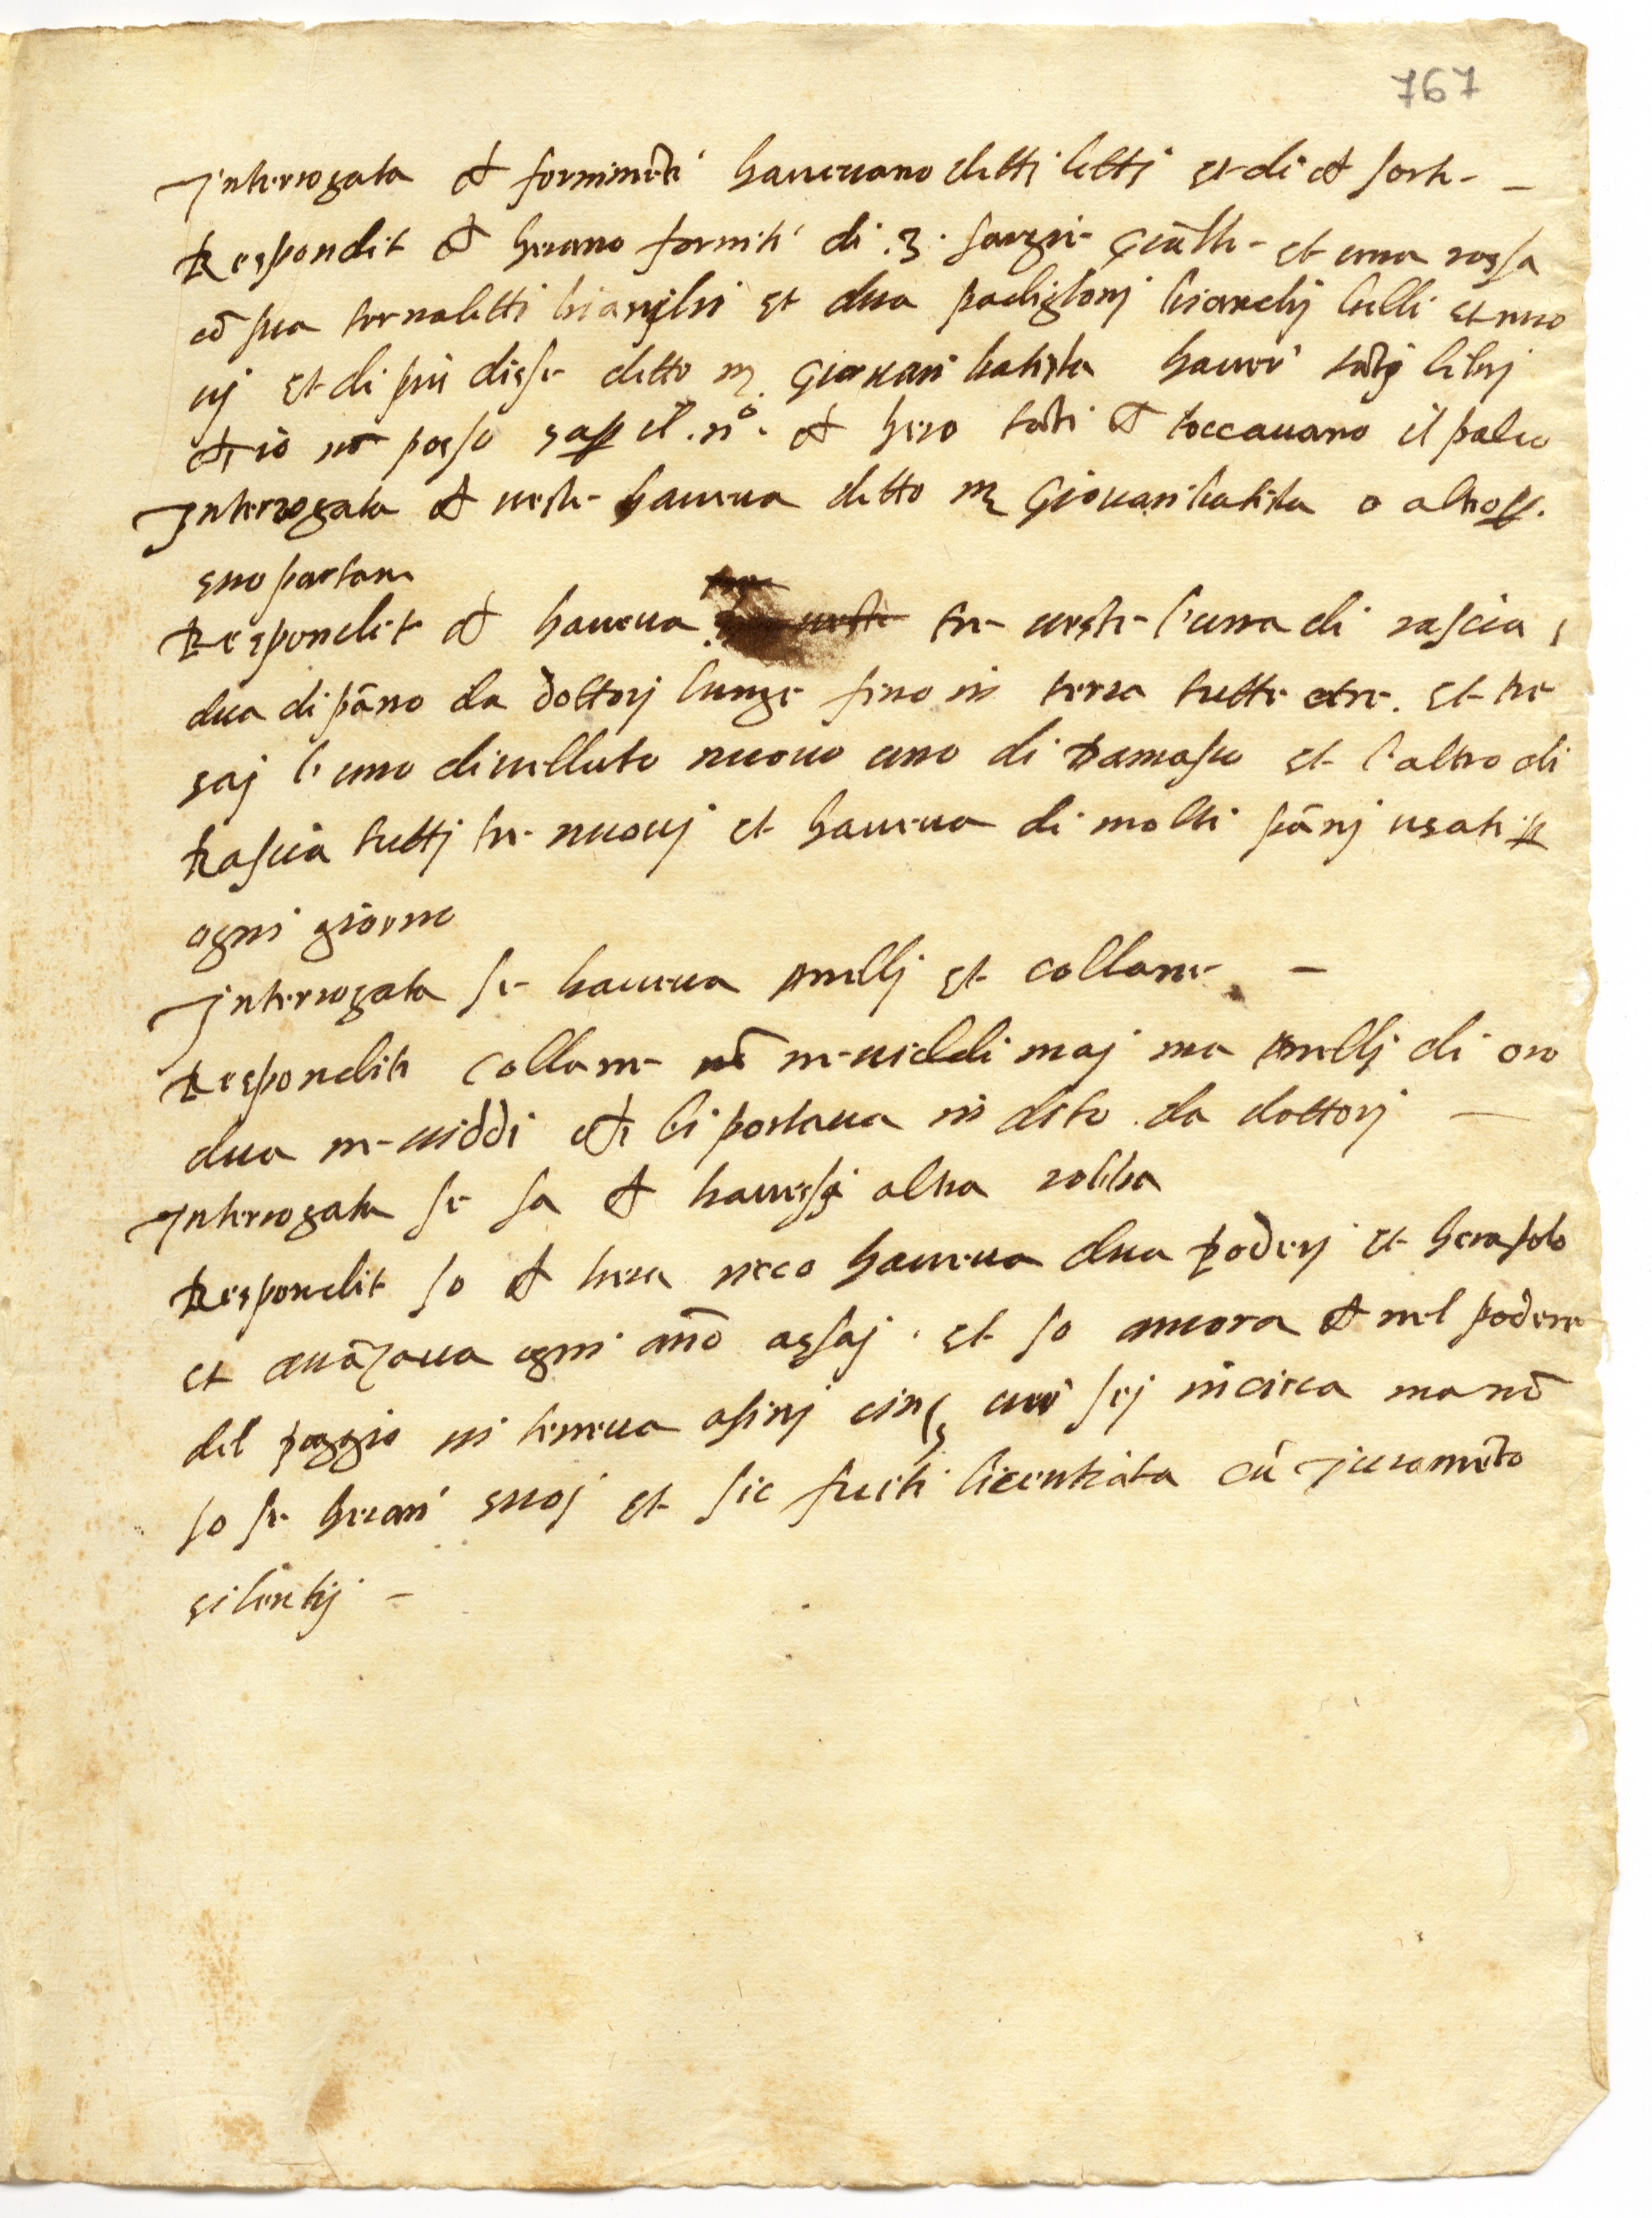 767
Interrogata che fornimēti haveuano detti letti et di che sorte -
Respondit che herano forniti di .3. sargie giālle et una rossa
cō sua tornaletti bianchi et dua padiglionj bianchj belli et nuo
vj et di più disse detto m. Giovan batista haver tātj librj
che io nō posso sap il .n°. che hero tāti che toccauano il palco
Interrogata che veste haueua detto m Giouan batista o altro p
suo portare
Respondit che haueua tre veste l'una di rascia ,
dua di pāno da dottorj lunge fino in terra tutte etre. et tre
saj l'uno di velluto nuouo uno di Damasco et l'altro di
Rascia tuttj tre nuouj et haueua di molti pānj usati p
ogni giorno
Interrogata se haueua anellj et collane -
Respondit collane nō ne viddi maj ma anellj di oro
dua ne viddi che li portaua in dito da dottorj -
Interrogata se sa che havessj altra robba
Respondit so che hera ricco haueua dua poderj et hera solo
et auāzaua ogni āno assaj . et so ancora che nel podere
del poggio vi teneua asinj cinq over sej incirca ma nō
so se heran suoj et sic fuit licentiata cū Juramēto
silentij -